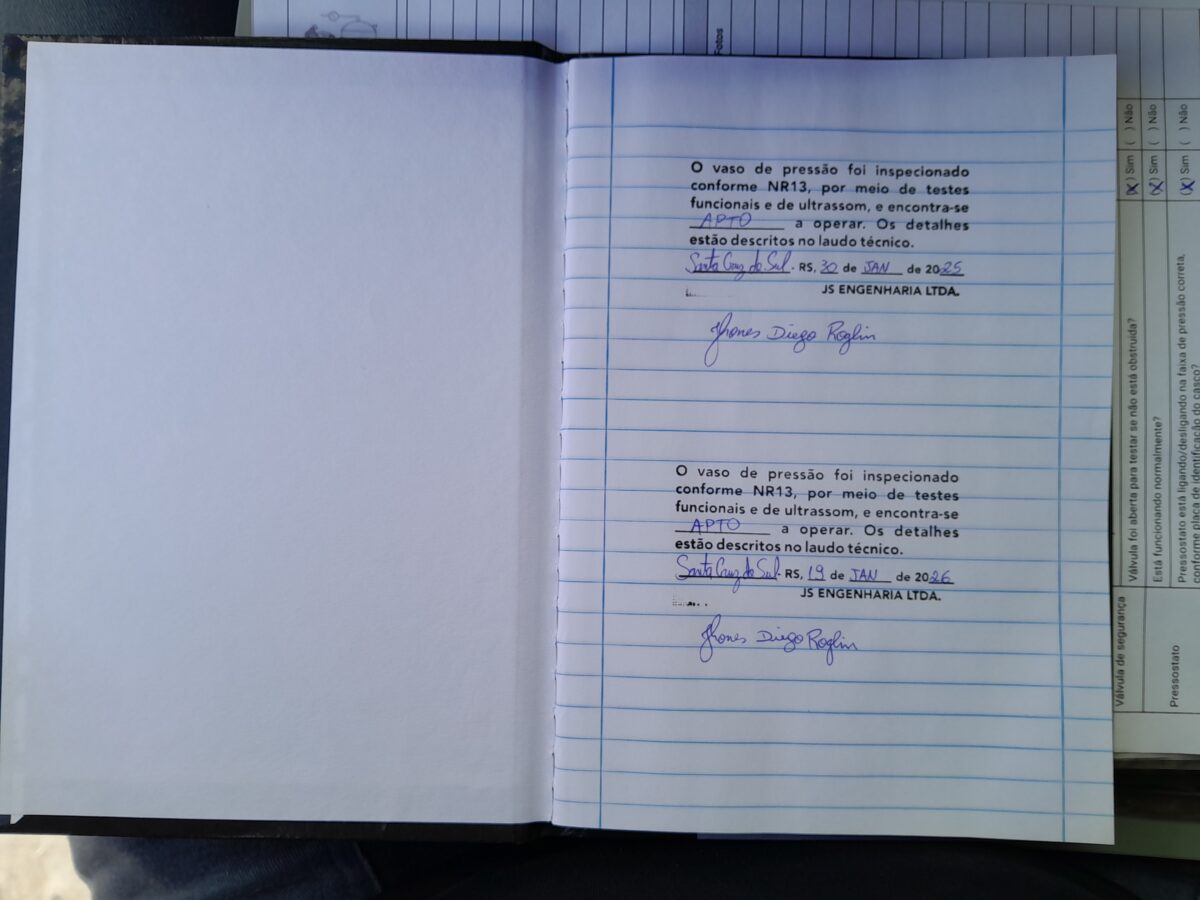 O vaso de pressão foi inspecionado
conforme NR13, por meio de testes
funcionais e de ultrassom, e encontra-se
APTO a operar. Os detalhes
estão descritos no laudo técnico.
Santa Cruz do Sul - RS, 30 de JAN de 2025
JS ENGENHARIA LTDA.
Jhones Diego Roglin
O vaso de pressão foi inspecionado
conforme NR13, por meio de testes
funcionais e de ultrassom, e encontra-se
APTO a operar. Os detalhes
estão descritos no laudo técnico.
Santa Cruz do Sul - RS, 19 de JAN de 2026
JS ENGENHARIA LTDA.
Jhones Diego Roglin
Fotos
Válvula de segurança
Válvula foi aberta para testar se não está obstruída? (X) Sim ( ) Não
Está funcionando normalmente? (X) Sim ( ) Não
Pressostato
Pressostato está ligando/desligando na faixa de pressão correta, (X) Sim ( ) Não
conforme placa de identificação do casco?